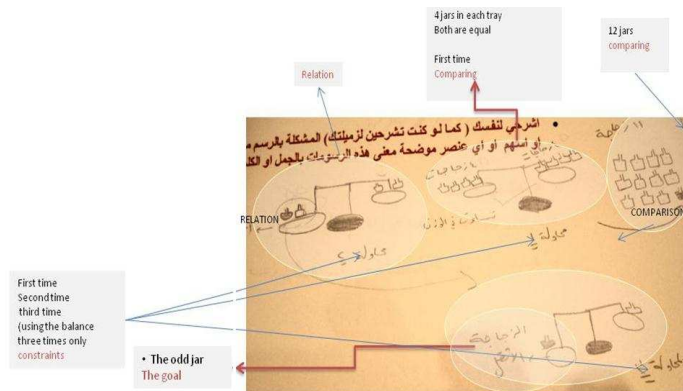 4 jars in each tray
Both are equal
First time
Comparing
12 jars
comparing
Relation
اشرحي لنفسك ( كما لو كنت تشرحين لزميلتك) المشكلة بالرسم
أو أسهم أو أي عنصر موضحة معنى هذه الرسومات بالجمل أو
RELATION
COMPARISON
تساوت في الوزن
محاولة
محاولة
First time
Second time
third time
(using the balance
three times only
constraints
• The odd jar
The goal
الزجاجة
محاولة